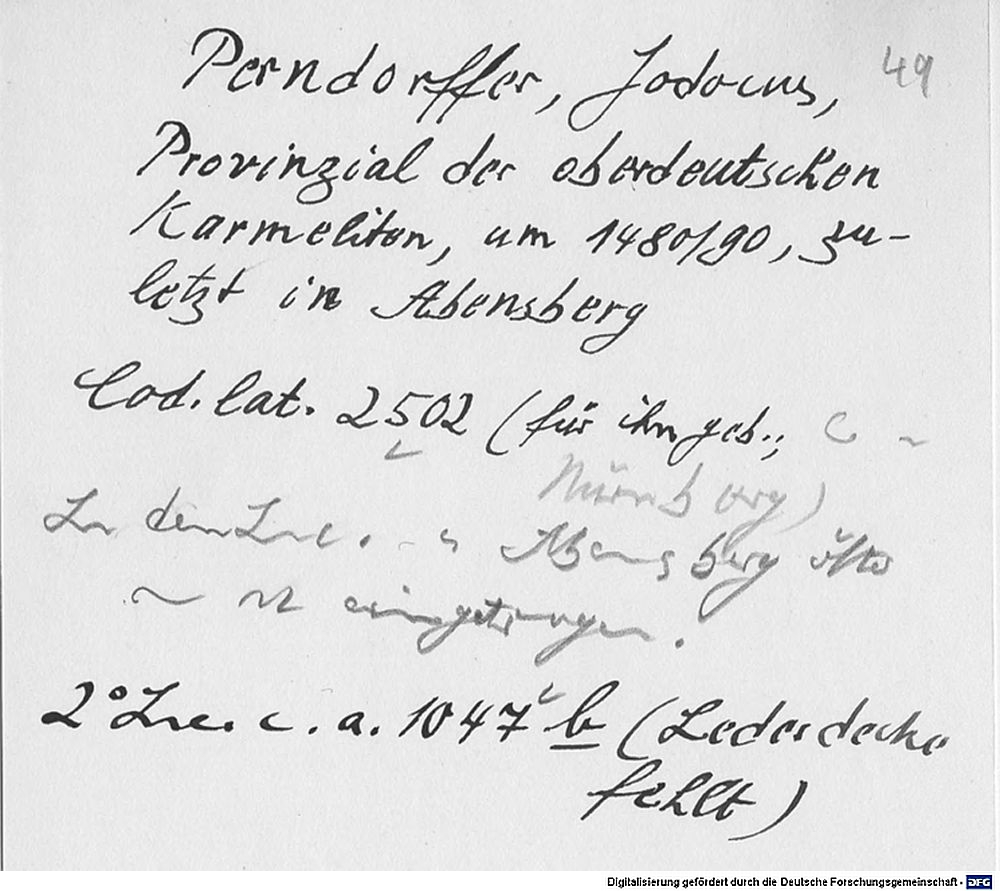 49
Perndorffer, Jodocus,
Provinzial der oberdeutschen
Karmeliten, um 1480/90, zu-
letzt in Abensberg
Cod. lat. 2502 (für ihn geb.,
Nürnberg)
In den Inc. Abensberg öfter
eingetragen.
2° Inc. c. a. 1047 b (Lederdecke
fehlt)
Digitalisierung gefördert durch die Deutsche Forschungsgemeinschaft - DFG